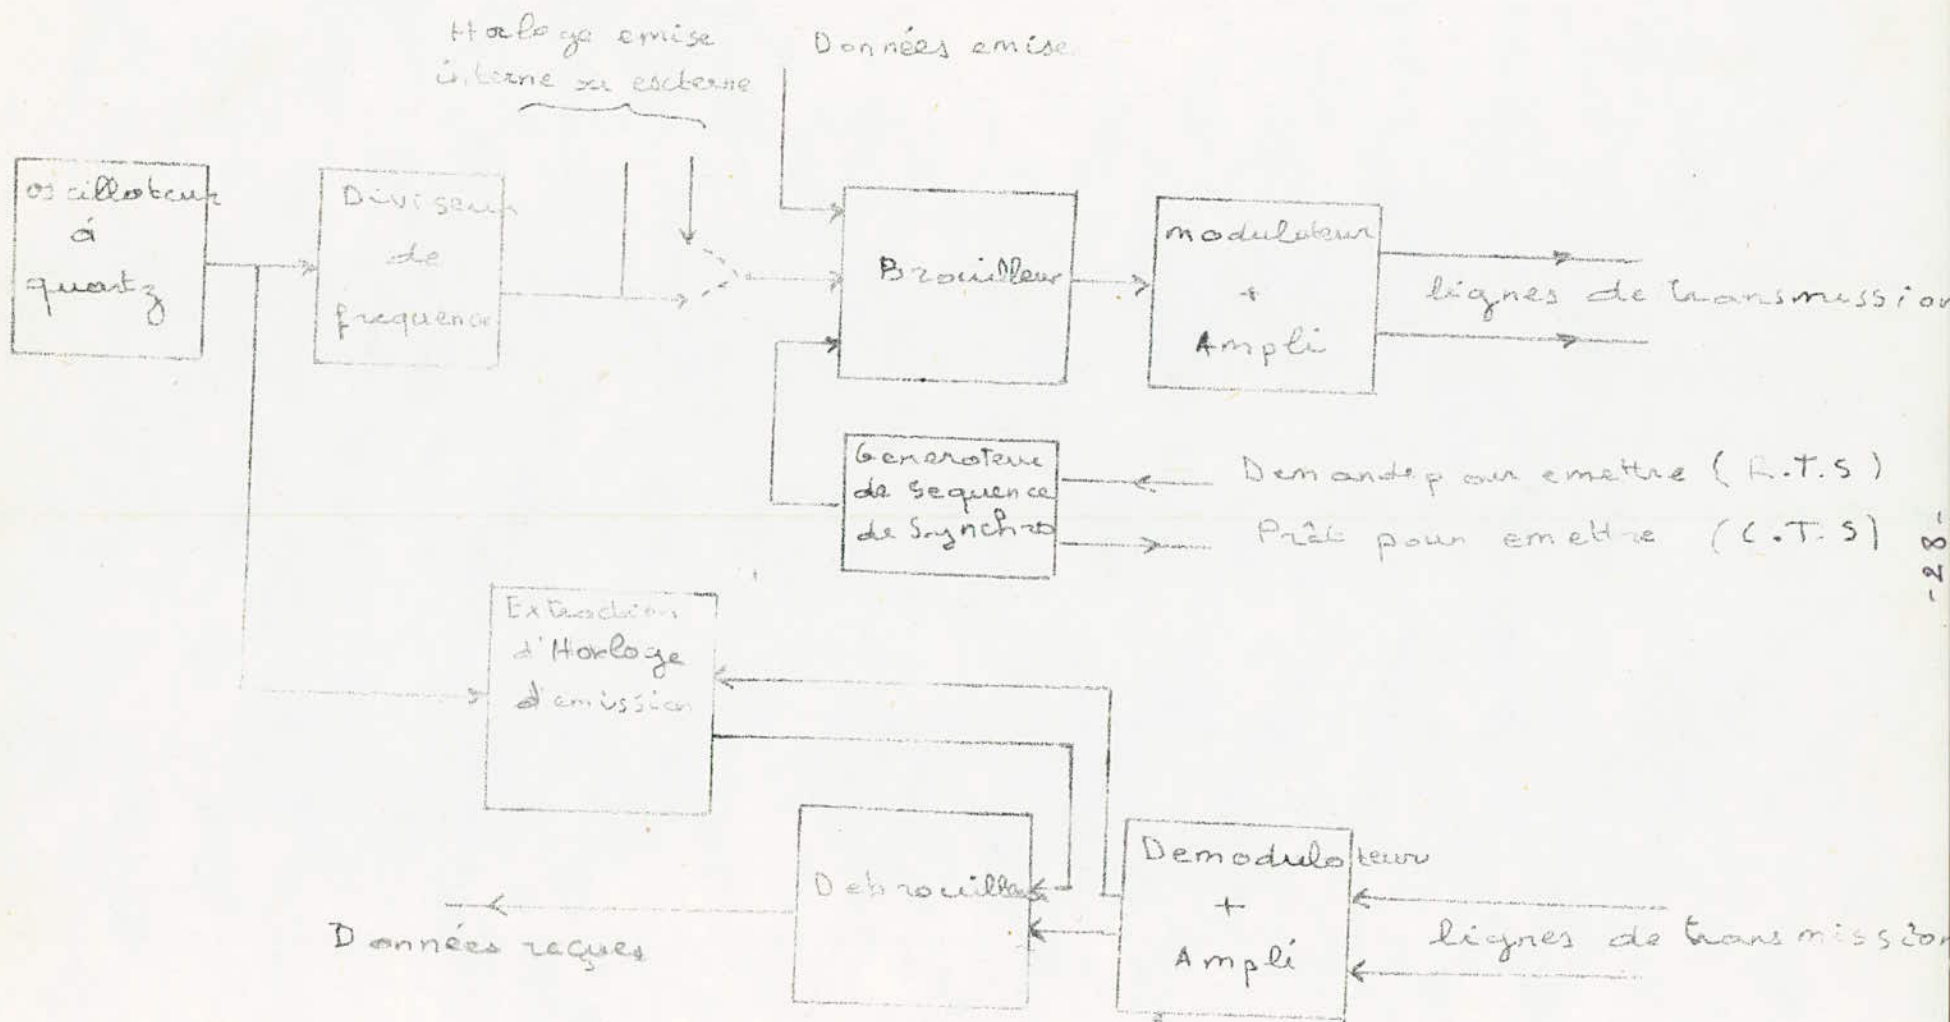 Horloge emise
interne ou externe
Données emise
oscillateur
à
quartz
Diviseur
de
frequence
Brouilleur
modulateur
+
Ampli
lignes de transmission
Generateur
de sequence
de Synchro
Demande pour emettre (R.T.S)
Prêt pour emettre (C.T.S)
-28-
Extraction
d'Horloge
d'emission
Debrouilleur
Données reçues
Demodulateur
+
Ampli
lignes de transmission